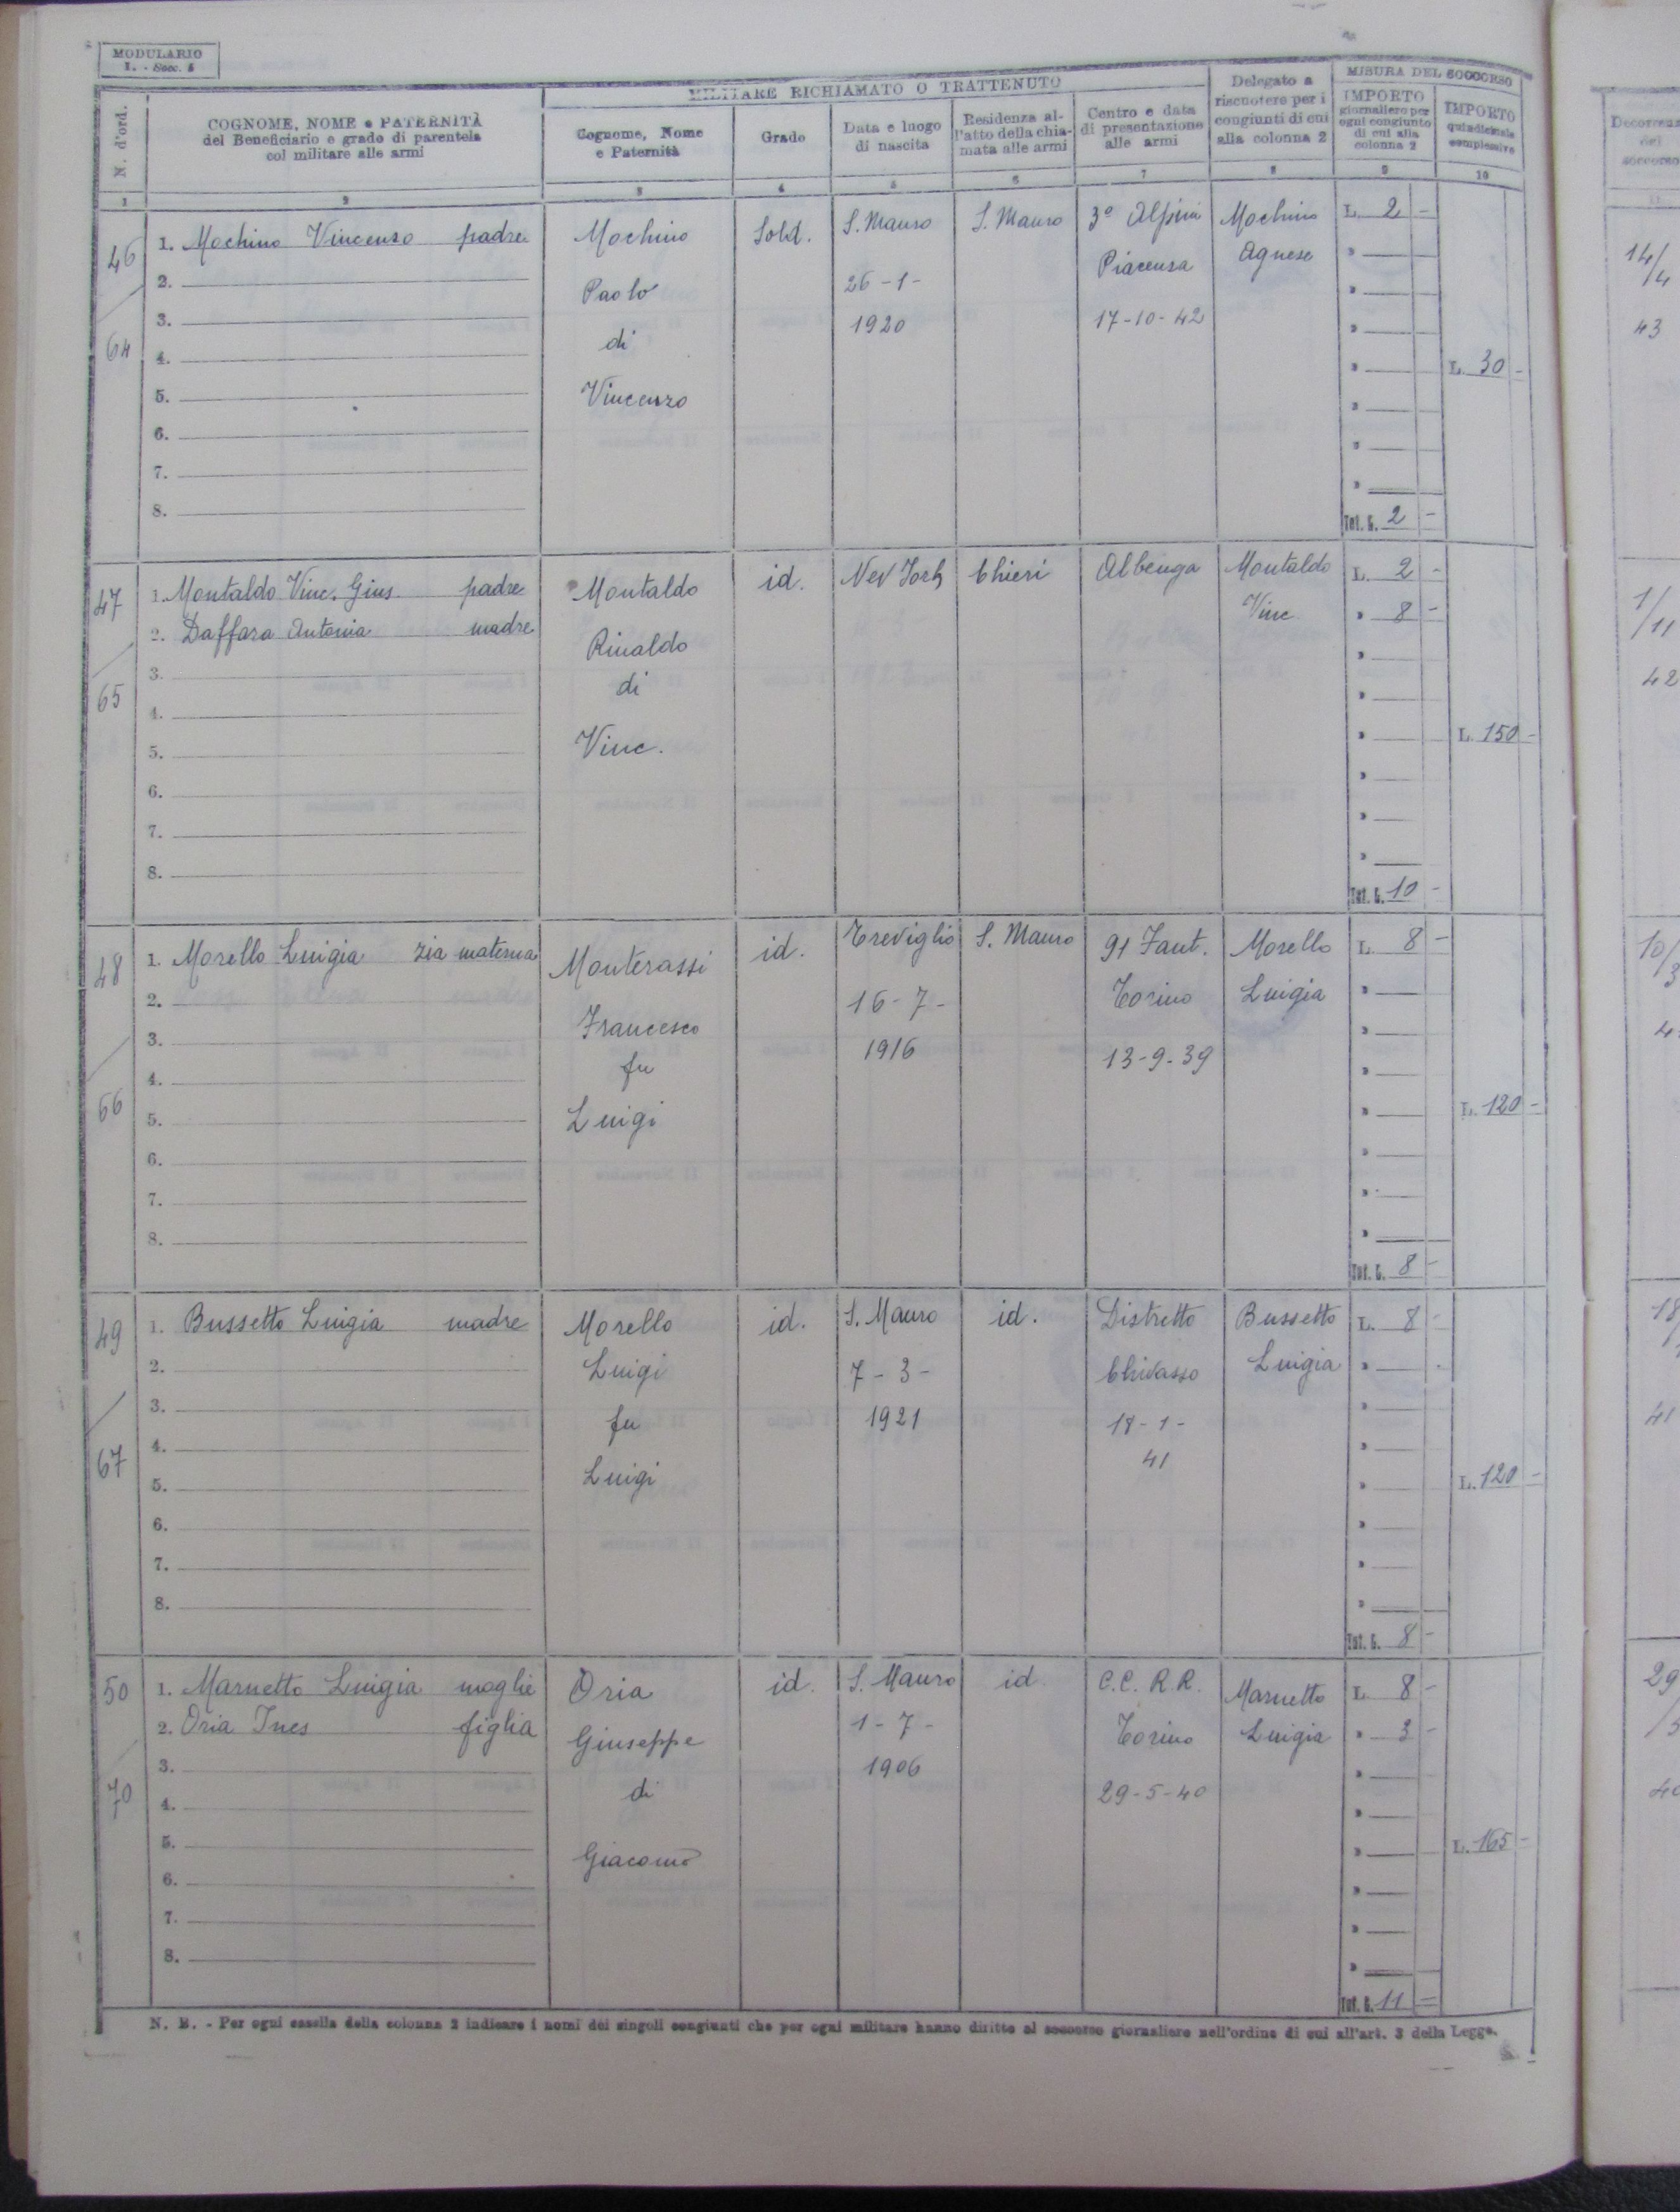 MODULARIO
I. - Socc. 4
N. d'ord.
COGNOME, NOME e PATERNITÀ
del Beneficiario e grado di parentela
col militare alle armi
MILITARE RICHIAMATO O TRATTENUTO
Cognome, Nome
e Paternità
Grado
Data e luogo
di nascita
Residenza al-
l'atto della chia-
mata alle armi
Centro e data
di presentazione
alle armi
Delegato a
riscuotere per i
congiunti di cui
alla colonna 2
MISURA DEL SOCCORSO
IMPORTO
giornaliero per
ogni congiunto
di cui alla
colonna 2
IMPORTO
quindicinale
complessivo
Decorrenza
del
soccorso
1 2 3 4 5 6 7 8 9 10
46
64
1. Mochino Vincenzo padre
2.
3.
4.
5.
6.
7.
8.
Mochino
Paolo
di
Vincenzo
Sold.
S. Mauro
26-1-
1920
S. Mauro
3° Alpini
Piacenza
17-10-42
Mochino
Agnese
L. 2 -
Tot. G. 2 -
L. 30 -
14/4
43
47
65
1. Montaldo Vinc. Gius. padre
2. Daffara Antonia madre
3.
4.
5.
6.
7.
8.
Montaldo
Rinaldo
di
Vinc.
id.
Nev York
Chieri
Albenga
Montaldo
Vinc
L. 2 -
» 8 -
Tot. G. 10 -
L. 150 -
1/11
42
48
66
1. Morello Luigia zia materna
2.
3.
4.
5.
6.
7.
8.
Monterassi
Francesco
fu
Luigi
id.
Treviglio
16-7-
1916
S. Mauro
91 Fant.
Torino
13-9-39
Morello
Luigia
L. 8 -
Tot. G. 8 -
L. 120 -
10/3
49
67
1. Bussetto Luigia madre
2.
3.
4.
5.
6.
7.
8.
Morello
Luigi
fu
Luigi
id.
S. Mauro
7-3-
1921
id.
Distretto
Chivasso
18-1-
41
Bussetto
Luigia
L. 8 -
Tot. G. 8 -
L. 120 -
18/
41
50
70
1. Marnetto Luigia moglie
2. Oria Ines figlia
3.
4.
5.
6.
7.
8.
Oria
Giuseppe
di
Giacomo
id.
S. Mauro
1-7-
1906
id
C.C. R.R.
Torino
29-5-40
Marnetto
Luigia
L. 8 -
» 3 -
Tot. G. 11 -
L. 165 -
29
/5
40
N. B. - Per ogni casella della colonna 2 indicare i nomi dei singoli congiunti che per ogni militare hanno diritto al soccorso giornaliero nell'ordine di cui all'art. 3 della Legge.